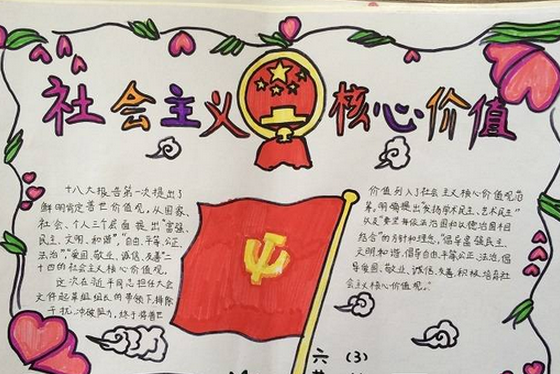 社会主义核心价值
十八大报告第一次提出了
鲜明肯定普世价值观,从国家、
社会、个人三个层面提出"富强、
民主、文明、和谐","自由、平等、公正、
法治","爱国、敬业、诚信、友善"二
十四的社会主义核心价值观,
这次在近平同志担任大会
文件起草组组长的带领下,排除
干扰,冲破阻力,终于将普世
价值列入了社会主义核心价值观范
筹,明确提出"发扬学术民主、艺术民主"
以及"要坚持依法治国和以德治国相
结合"的方针和理念,"倡导富强民主
文明和谐,倡导自由平等公正、法治,倡
导爱国、敬业、诚信、友善,积极培育社
会主义核心价值观。"
六 (3)